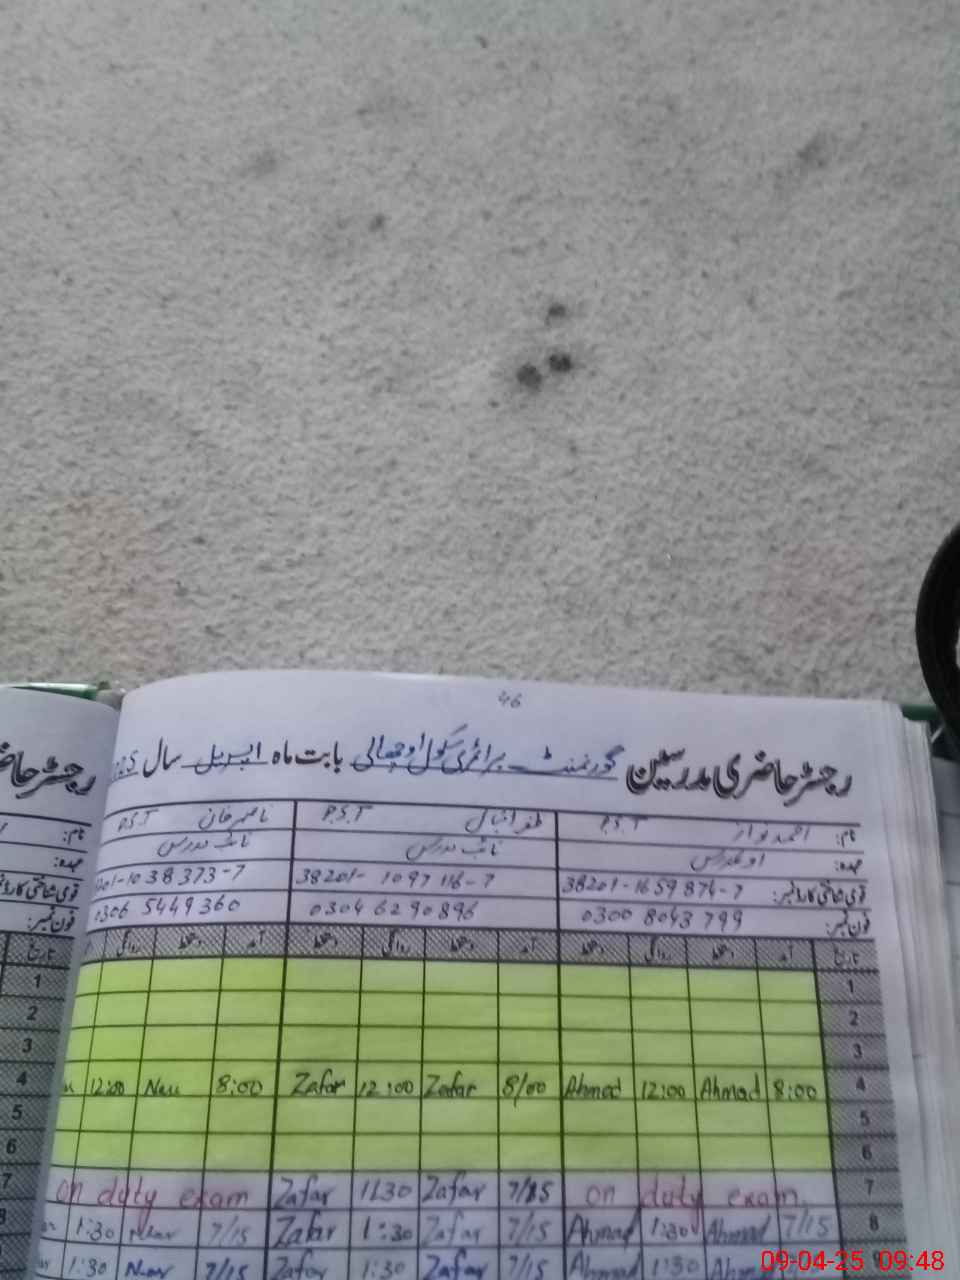 46
رجسٹر حاضری مدرسین گورنمنٹ پرائمری سکول اوچھالی بابت ماہ اپریل سال
رجسٹر حا
نام: احمد نواز P.S.T ظفر اقبال P.S.T ناصر خان P.S.T
نام:
عہدہ: نائب مدرس نائب مدرس
عہدہ:
قومی شناختی کارڈ نمبر: 38201-1659874-7 38201-1097116-7 201-1038373-7
قومی شناختی کارڈ
فون نمبر: 0300 8043799 0304 6290896 0306 5449360
فون نمبر:
تاریخ آمد دستخط روانگی دستخط آمد دستخط روانگی دستخط آمد دستخط روانگی
تاریخ
1 1
2 2
3 3
4 12:00 8:00 Zafar 12:00 Zafar 8/00 Ahmed 12:00 Ahmad 8:00 4
5 5
6 6
7 on duty exam Zafar 1130 Zafar 7/15 on duty exam. 7
8 1:30 7/15 Zafar 1:30 Zafar 7/15 Ahmad 1:30 Ahmad 7/15 8
1:30 7/15 Zafar 1:30 Zafar 7/15 Ahmad 1:30 Ahmad 9
09-04-25 09:48